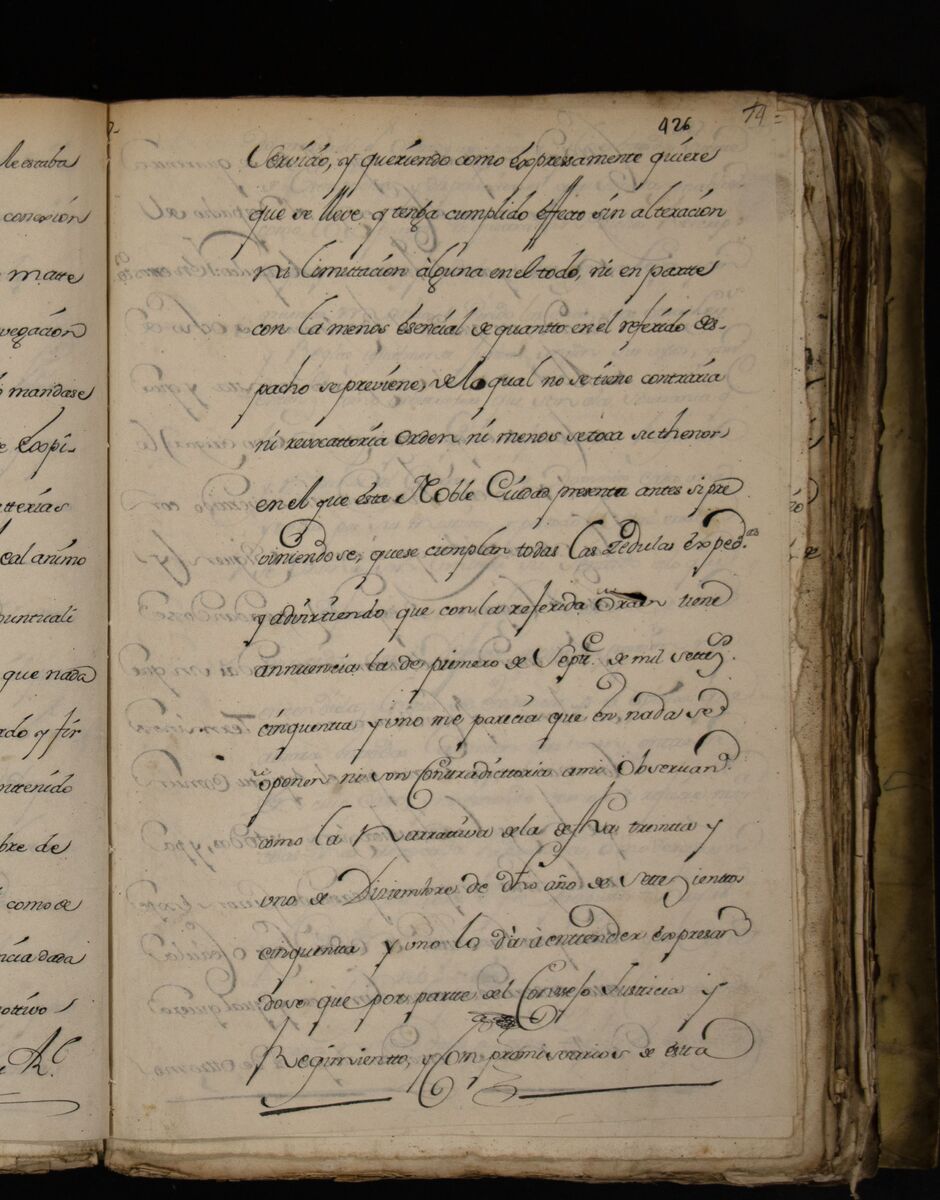 le estaba
conexión
matte
vegación
mandase
Exspi-
tterias
eal animo
puntuali
que nada
ado y fir
ntenido
bre de
como de
ncia dada
motivo
Rl.
426
74
Servicio, y queriendo como expressamente quiere
que se lleve y tenga cumplido effecto sin alteración
ni limittación alguna en el todo, ni en partte
con la menos esencial de quantto en el referido des-
pacho se previene, de lo qual no se tiene contraria
ni revocattoria orden ni menos se toca su thenor
en el que ésta Noble Ciudad presenta antes si pre
viniendose, que se cumplan todas las Zedulas exped.as
y advirtiendo que con la referida orden tiene
annuencia la de primero de Septe. de mil settes.
cinquenta y uno me parecia que en nada se
oponen ni son Contradictoria a mi Observan.
como la Narrativa de la de fha treinta y
uno de Diziembre de dho año de Settezienttos
cinquenta y uno lo dà à enttender expresan
dose que por parte del Conssejo Justicia y
Regimientto, y Compromisarios de esta